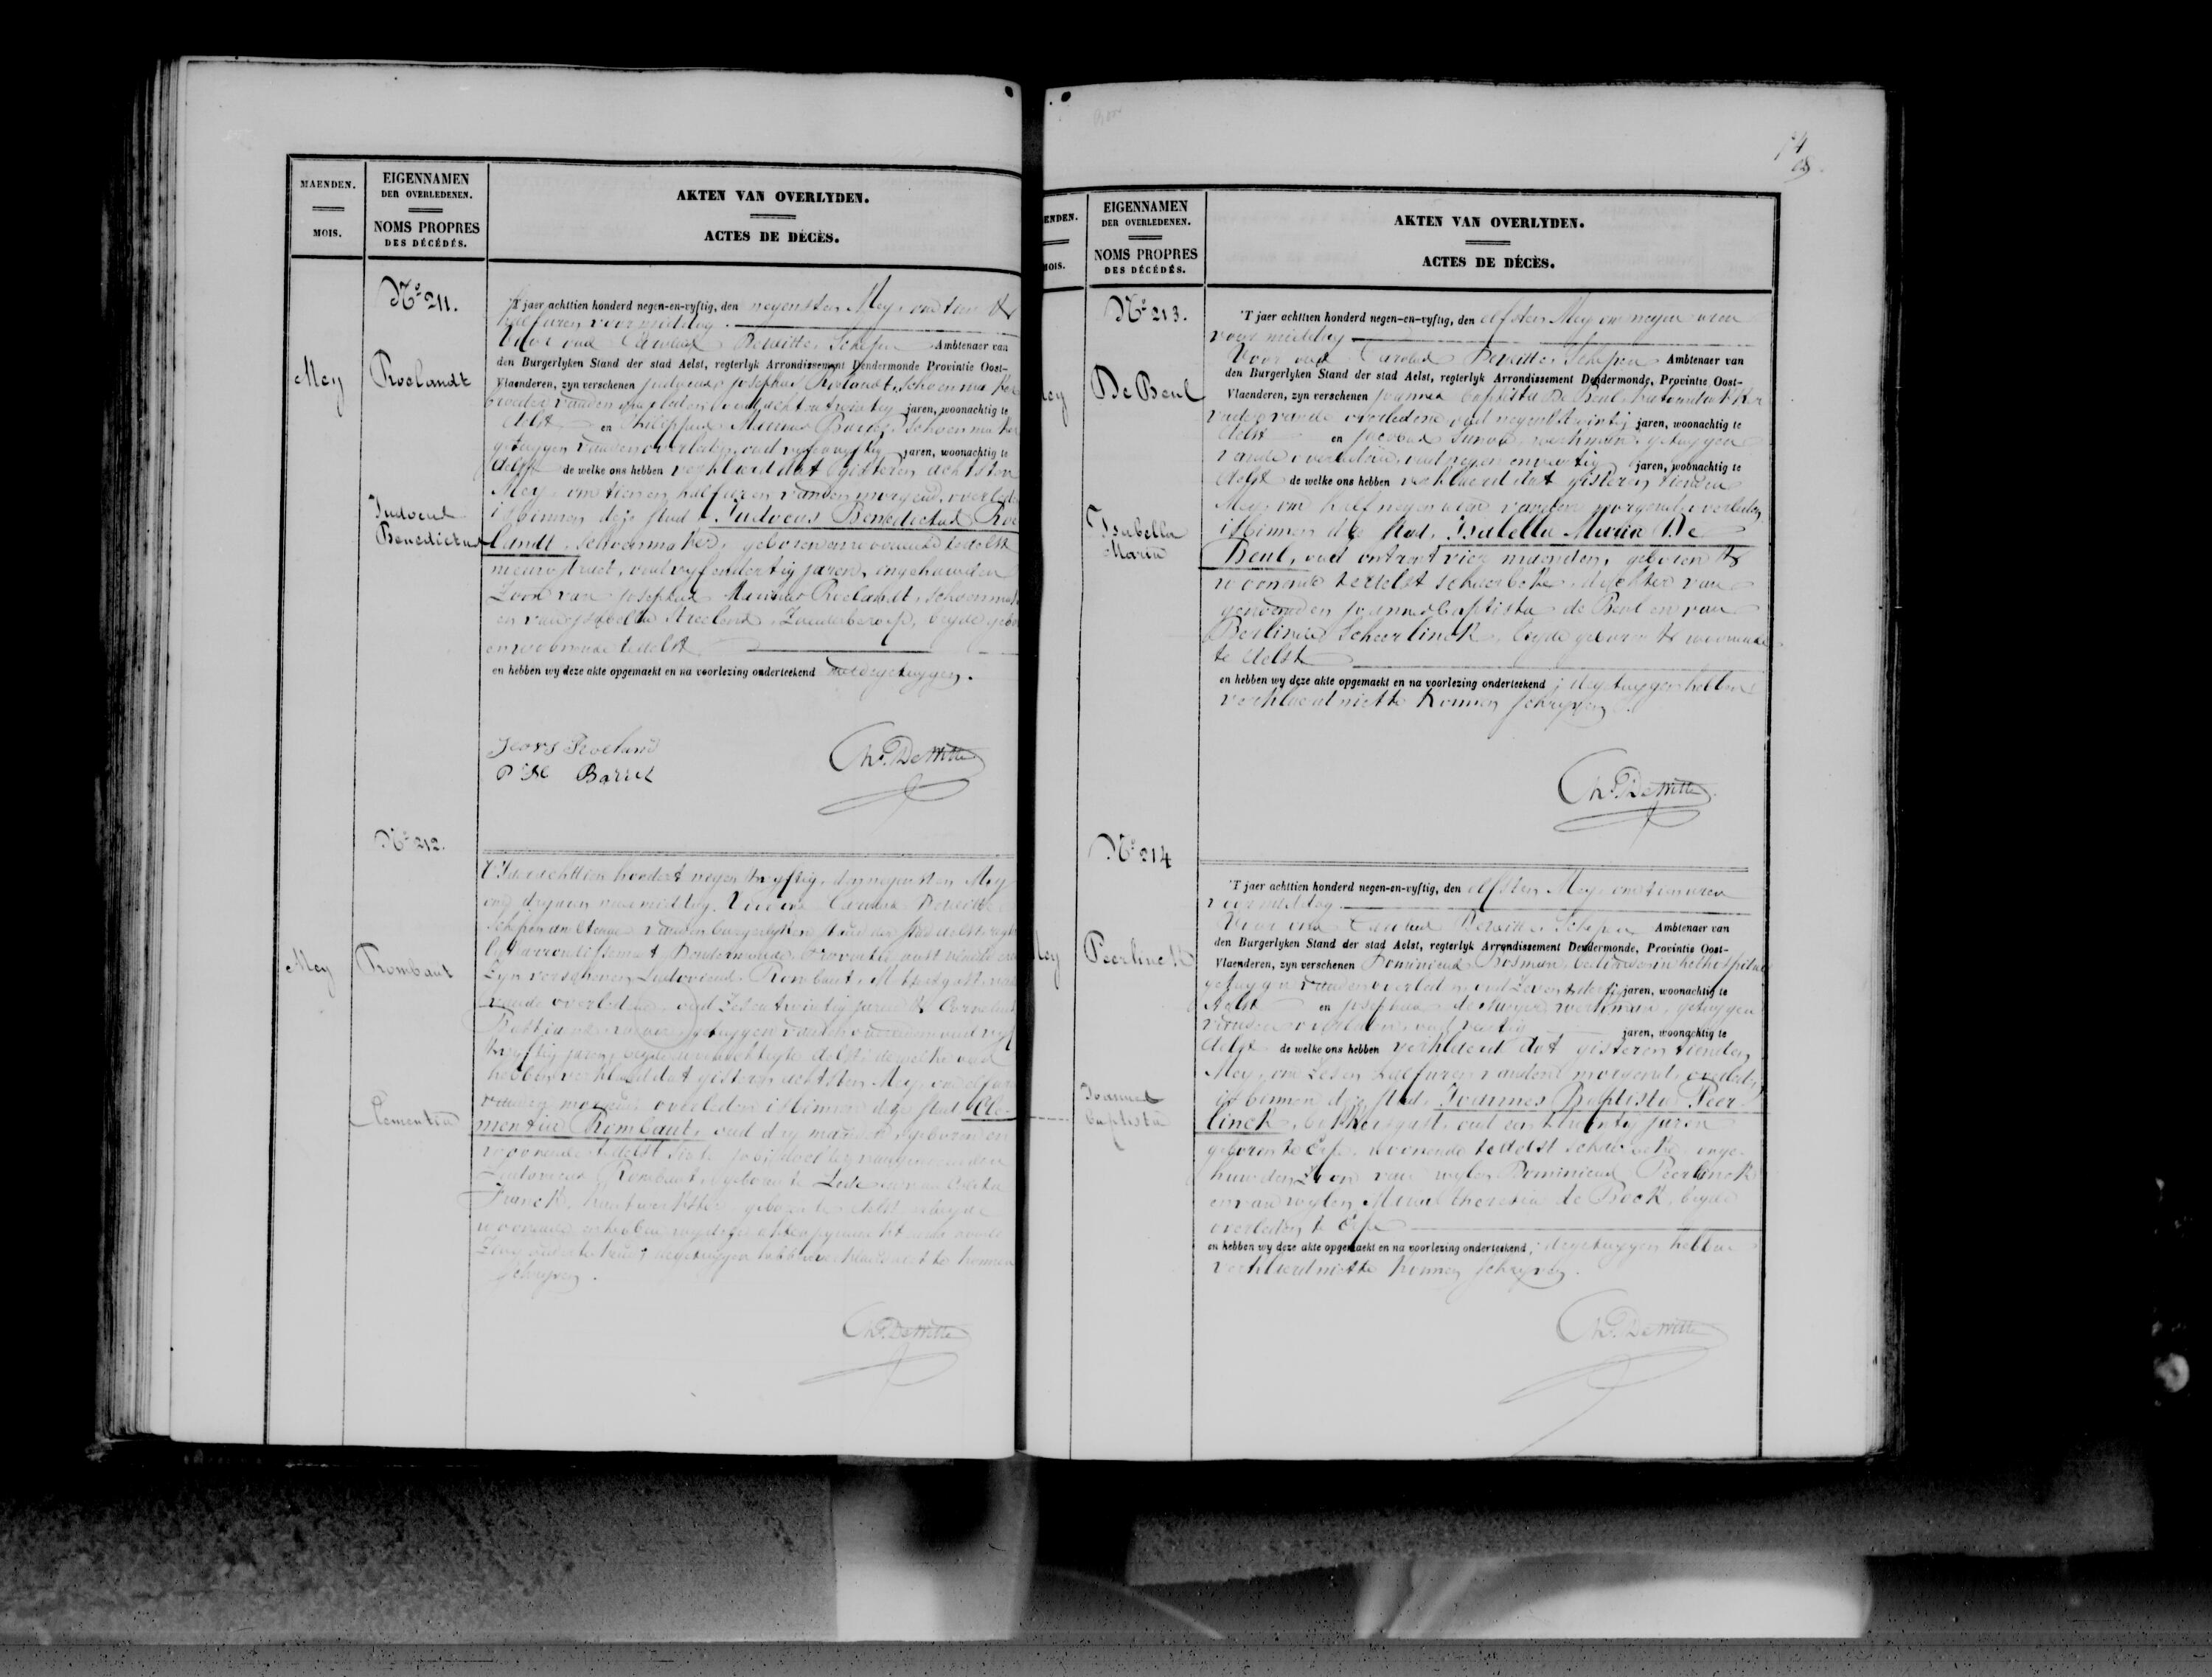 MAENDEN.
MOIS.
EIGENNAMEN
DER OVERLEDENEN.
NOMS PROPRES
DES DÉCÉDÉS.
AKTEN VAN OVERLYDEN.
ACTES DE DÉCÈS.
Nº 211.
Mey
Roelandt
Judocus
Benedictus
'T jaer achttien honderd negen-en-vyftig, den negensten Mey, om tien &
half uren voormiddag.
Voor ons Carolus Dewitte, Schepen Ambtenaer van
den Burgerlyken Stand der stad Aelst, regterlyk Arrondissement Dendermonde Provintie Oost-
Vlaenderen, zyn verschenen Josephus Roelandt, schoenmaker
broeder van den overleden, oud achtentwintig jaren, woonachtig te
Aelst en Philippus Barrez, schoenmaker
getuygen van den overleden, oud jaren, woonachtig te
Aelst de welke ons hebben verklaerd dat gisteren achtsten
Mey, om tien en half uren van den morgend, overleden
is binnen deze stad, Judocus Benedictus Roe-
landt, schoenmaker, geboren en woonende te Aelst
nieuwstraet, oud vyfendertig jaren, ongehuwden
Zoon van Josephus Roelandt, schoenmaker
en van Isabella Zonderberoep, beyde geboren
en woonende te Aelst
en hebben wy deze akte opgemaekt en na voorlezing onderteekend met de getuygen.
Ch. De Witte
Nº 212.
Mey
Rombaut
Clementia
'T Jaer achttien honderd negen & vyftig, den negensten Mey
om dry uren namiddag. Voor ons Carolus Dewitte
Schepen ambtenaer van den burgerlyken stand der stad Aelst, regter-
lyk arrondissement Dendermonde, Provintie oost vlaenderen
zyn verschenen Ludovicus Rombaut,
van de overledene, oud zesentwintig jaren & Cornelius
getuygen van de overledene oud vyf
& vyftig jaren, beyde woonachtig te Aelst, de welke ons
hebben verklaerd dat gisteren achtsten Mey, om elf uren
van den morgend overleden is binnen deze stad Cle-
mentia Rombaut, oud dry maenden, geboren en
woonende te Aelst dochter van genoemden
Ludovicus Rombaut, geboren te Lede en van
Franck, geboren te Aelst
schryven.
Ch. De Witte
74
EIGENNAMEN
DER OVERLEDENEN.
NOMS PROPRES
DES DÉCÉDÉS.
AKTEN VAN OVERLYDEN.
ACTES DE DÉCÈS.
Nº 213.
De Beul
Isabella
Maria
'T jaer achttien honderd negen-en-vyftig, den elfsten Mey om negen uren
voormiddag
Voor ons Carolus Dewitte, Schepen Ambtenaer van
den Burgerlyken Stand der stad Aelst, regterlyk Arrondissement Dendermonde, Provintie Oost-
Vlaenderen, zyn verschenen Joannes Baptista De Beul,
vader van de overledene oud negen & twintig jaren, woonachtig te
Aelst en Jacobus werkman, getuygen
van de overledene, oud negen en veertig jaren, woonachtig te
Aelst de welke ons hebben verklaerd dat gisteren tienden
Mey, om half negen uren van den morgend, overleden
is binnen deze stad, Isabella Maria De
Beul, oud ontrent vier maenden, geboren &
woonende te Aelst Schaerbeke, dochter van
genoemden Joannes Baptista de Beul en van
Berlindis Scheerlinck, beyde geboren & woonende
te Aelst
en hebben wy deze akte opgemaekt en na voorlezing onderteekend ; de getuygen hebben
verklaerd niet te konnen schryven.
Ch. De Witte
Nº 214
Peerlinck
Joannes
baptista
'T jaer achttien honderd negen-en-vyftig, den elfsten Mey, om tien uren
voormiddag.
Voor ons Carolus Dewitte, Schepen Ambtenaer van
den Burgerlyken Stand der stad Aelst, regterlyk Arrondissement Dendermonde, Provintie Oost-
Vlaenderen, zyn verschenen Dominicus Bosman, bediende in het hospitael
getuyge van den overleden, oud zeven & dertig jaren, woonachtig te
Aelst en Josephus werkman, getuygen
van den overleden, oud veertig jaren, woonachtig te
Aelst de welke ons hebben verklaerd dat gisteren tienden
Mey, om zes en half uren van den morgend, overleden
is binnen deze stad, Joannes Baptista Peer-
linck, bakkersgast, oud een & twintig jaren
geboren te Erpe, woonende te Aelst Schaerbeke, onge-
huwden Zoon van wylen Dominicus Peerlinck
en van wylen Maria theresia de Prock, beyde
overleden te Erpe
en hebben wy deze akte opgemaekt en na voorlezing onderteekend, de getuygen hebben
verklaerd niet te konnen schryven.
Ch. De Witte